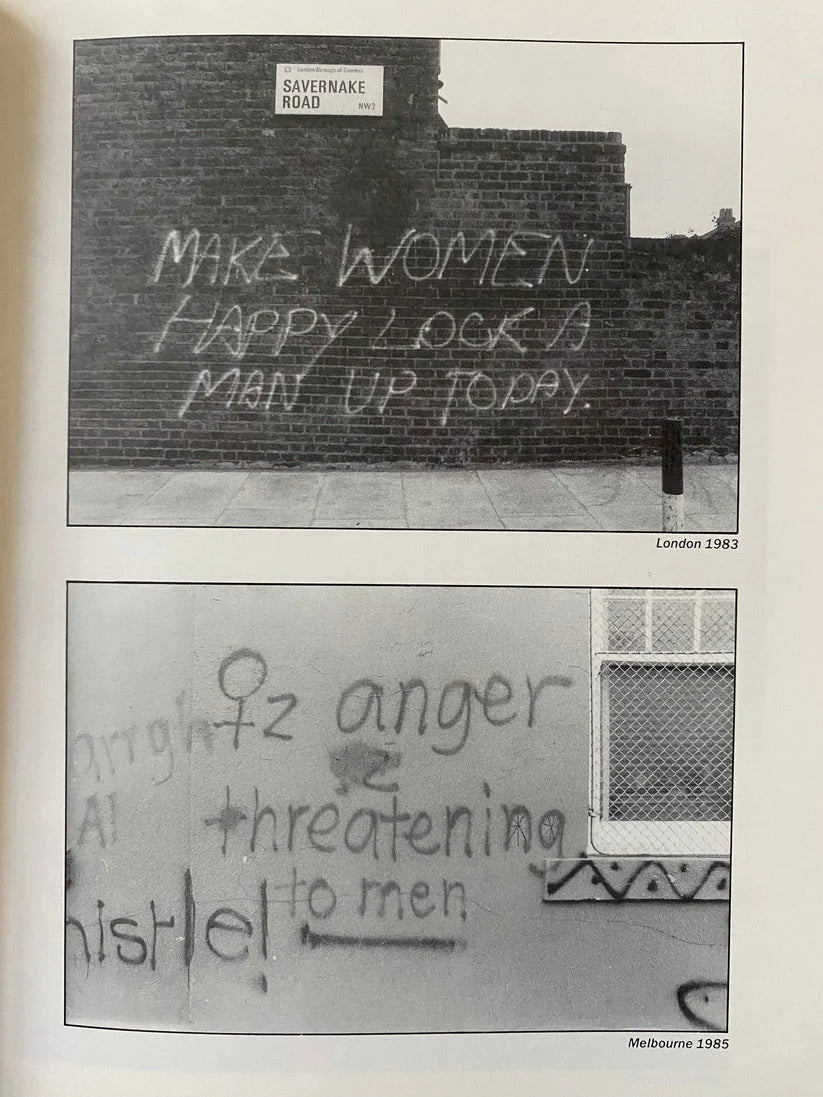 London Borough of Camden
SAVERNAKE
ROAD NW3
MAKE WOMEN
HAPPY LOCK A
MAN UP TODAY.
London 1983
♀z anger
iz
threatening
to men
arrgh
A!
histle!
Melbourne 1985